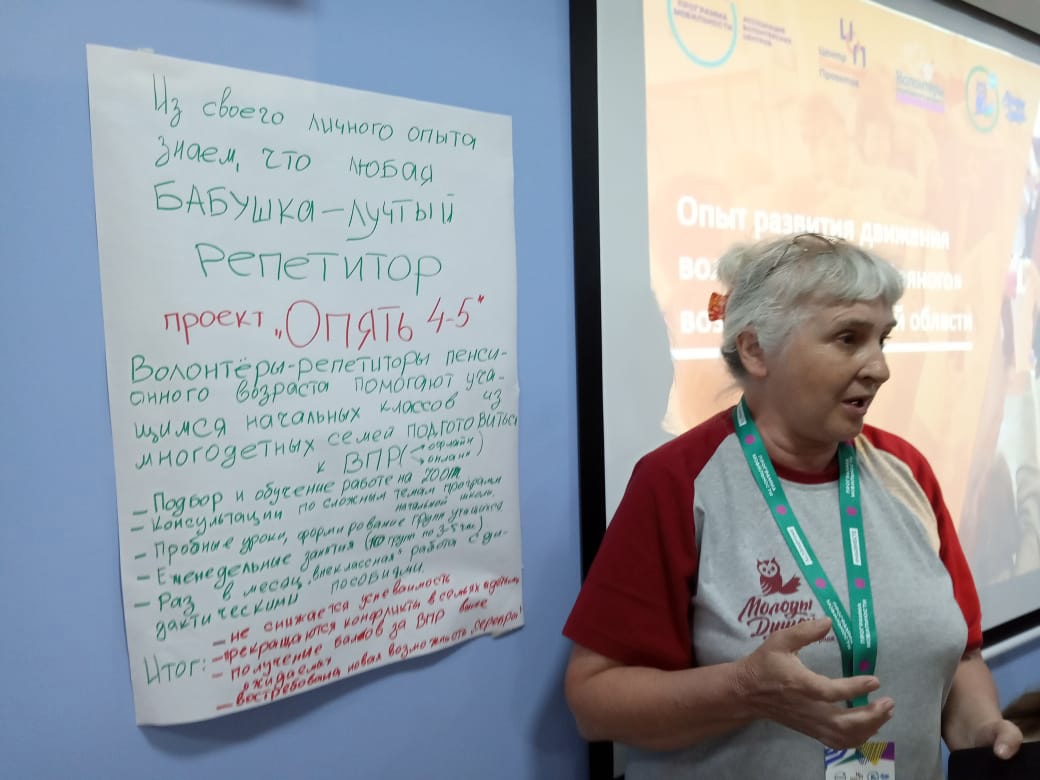 Из своего личного опыта
знаем, что любая
БАБУШКА – лучтый
репетитор
проект „Опять 4-5"
Волонтёры-репетиторы пенси-
онного возраста помогают уча-
щимся начальных классов из
многодетных семей подготовиться
к ВПР (→офлайн
→онлайн)
– Подбор и обучение работе на ZOOM
– Консультации по сложным темам программ
начальной школы.
– Пробные уроки, формирование групп учащихся
– Еженедельные занятия (групп по 3-5 чел)
– Раз в месяц „внеклассная" работа с ди-
дактическими пособиями.
Итог:
– не снижается успеваемость
– прекращаются конфликты в семьях
– получение баллов за ВПР выше
ожидаемых
– востребована новая возможность
ПРОГРАММА
МОБИЛЬНОСТИ
АССОЦИАЦИЯ
ВОЛОНТЕРСКИХ
ЦЕНТРОВ
Центр
Проектов
Волонтёры
Опыт развития движения
вол
яного»
воз
й области
ПРОГРАММА
МОБИЛЬНОСТИ
Молоды
Душой